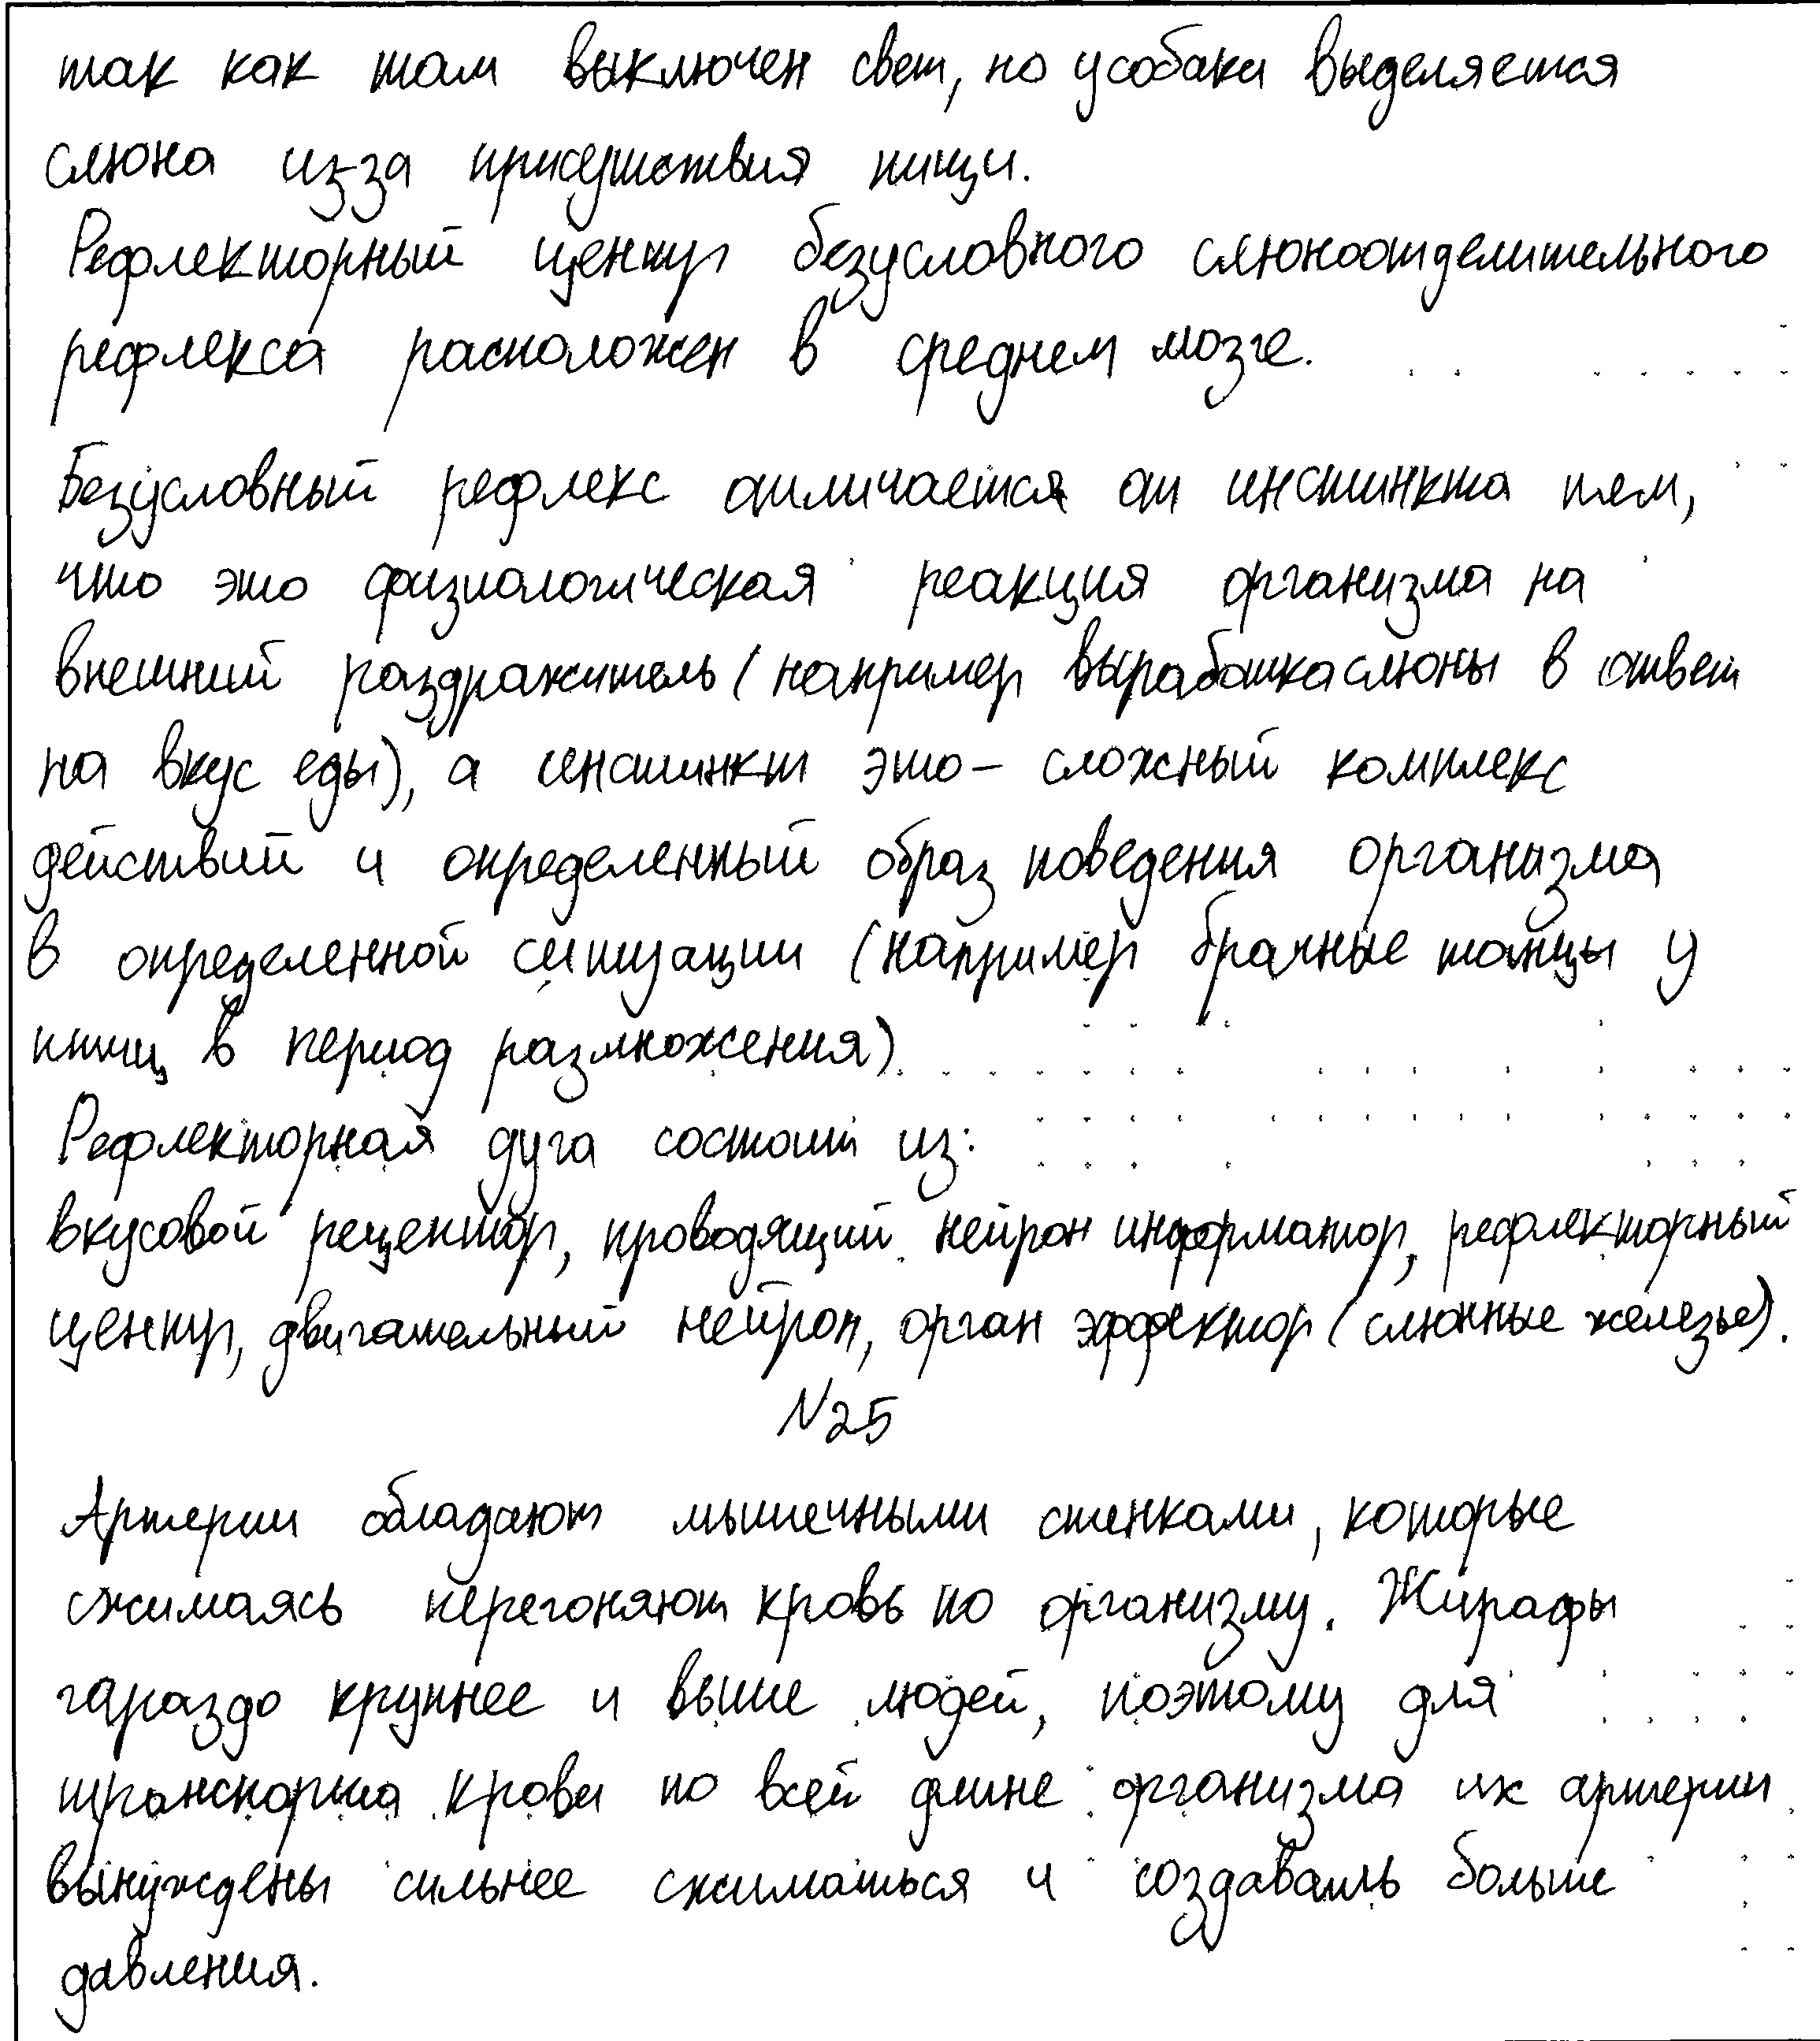 так как там выключен свет, но у собаки выделяется
слюна из-за присутствия пищи.
Рефлекторный центр безусловного слюноотделительного
рефлекса расположен в среднем мозге.
Безусловный рефлекс отличается от инстинкта тем,
что это физиологическая реакция организма на
внешний раздражитель (например выработка слюны в ответ
на вкус еды), а инстинкт это – сложный комплекс
действий и определенный образ поведения организма
в определенной ситуации (например брачные танцы у
птиц в период размножения).
Рефлекторная дуга состоит из:
вкусовой рецептор, проводящий нейрон информатор, рефлекторный
центр, двигательный нейрон, орган эффектор (слюнные железы).
N25
Артерии обладают мышечными стенками, которые
сжимаясь перегоняют кровь по организму. Жирафы
гараздо крупнее и выше людей, поэтому для
транспорта крови по всей длине организма их артерии
вынуждены сильнее сжиматься и создавать больше
давления.